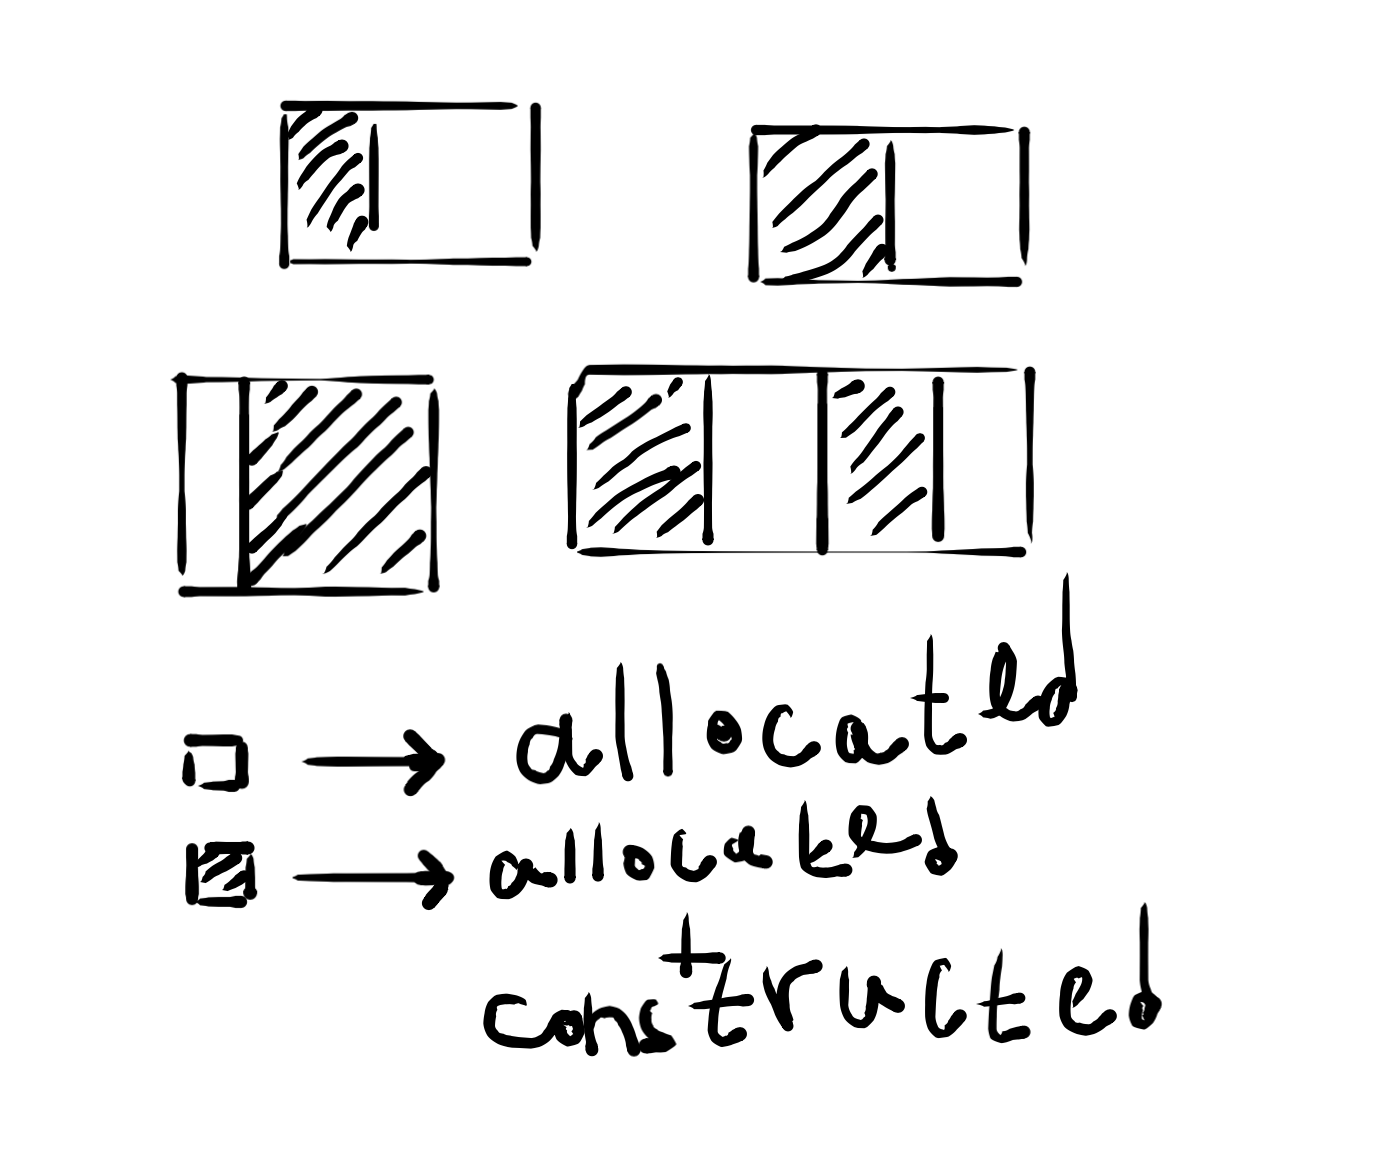 allocated
allocated
+
constructed